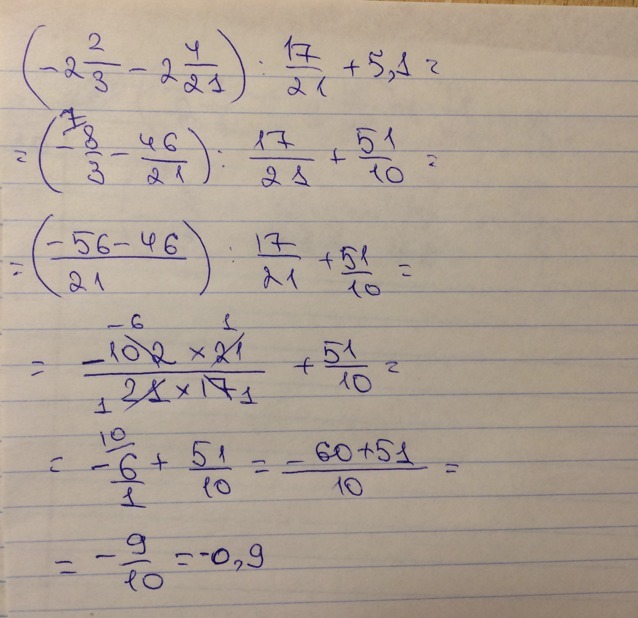 (-2 2/3 - 2 4/21) : 17/21 + 5,1 =
= (-8/3 ⁷ - 46/21) : 17/21 + 51/10 =
= ((-56-46)/21) : 17/21 + 51/10 =
= (-102 × 21)/(21 × 17) -6 1 1 1 + 51/10 =
= -6/1 ¹⁰ + 51/10 = (-60+51)/10 =
= -9/10 = -0,9